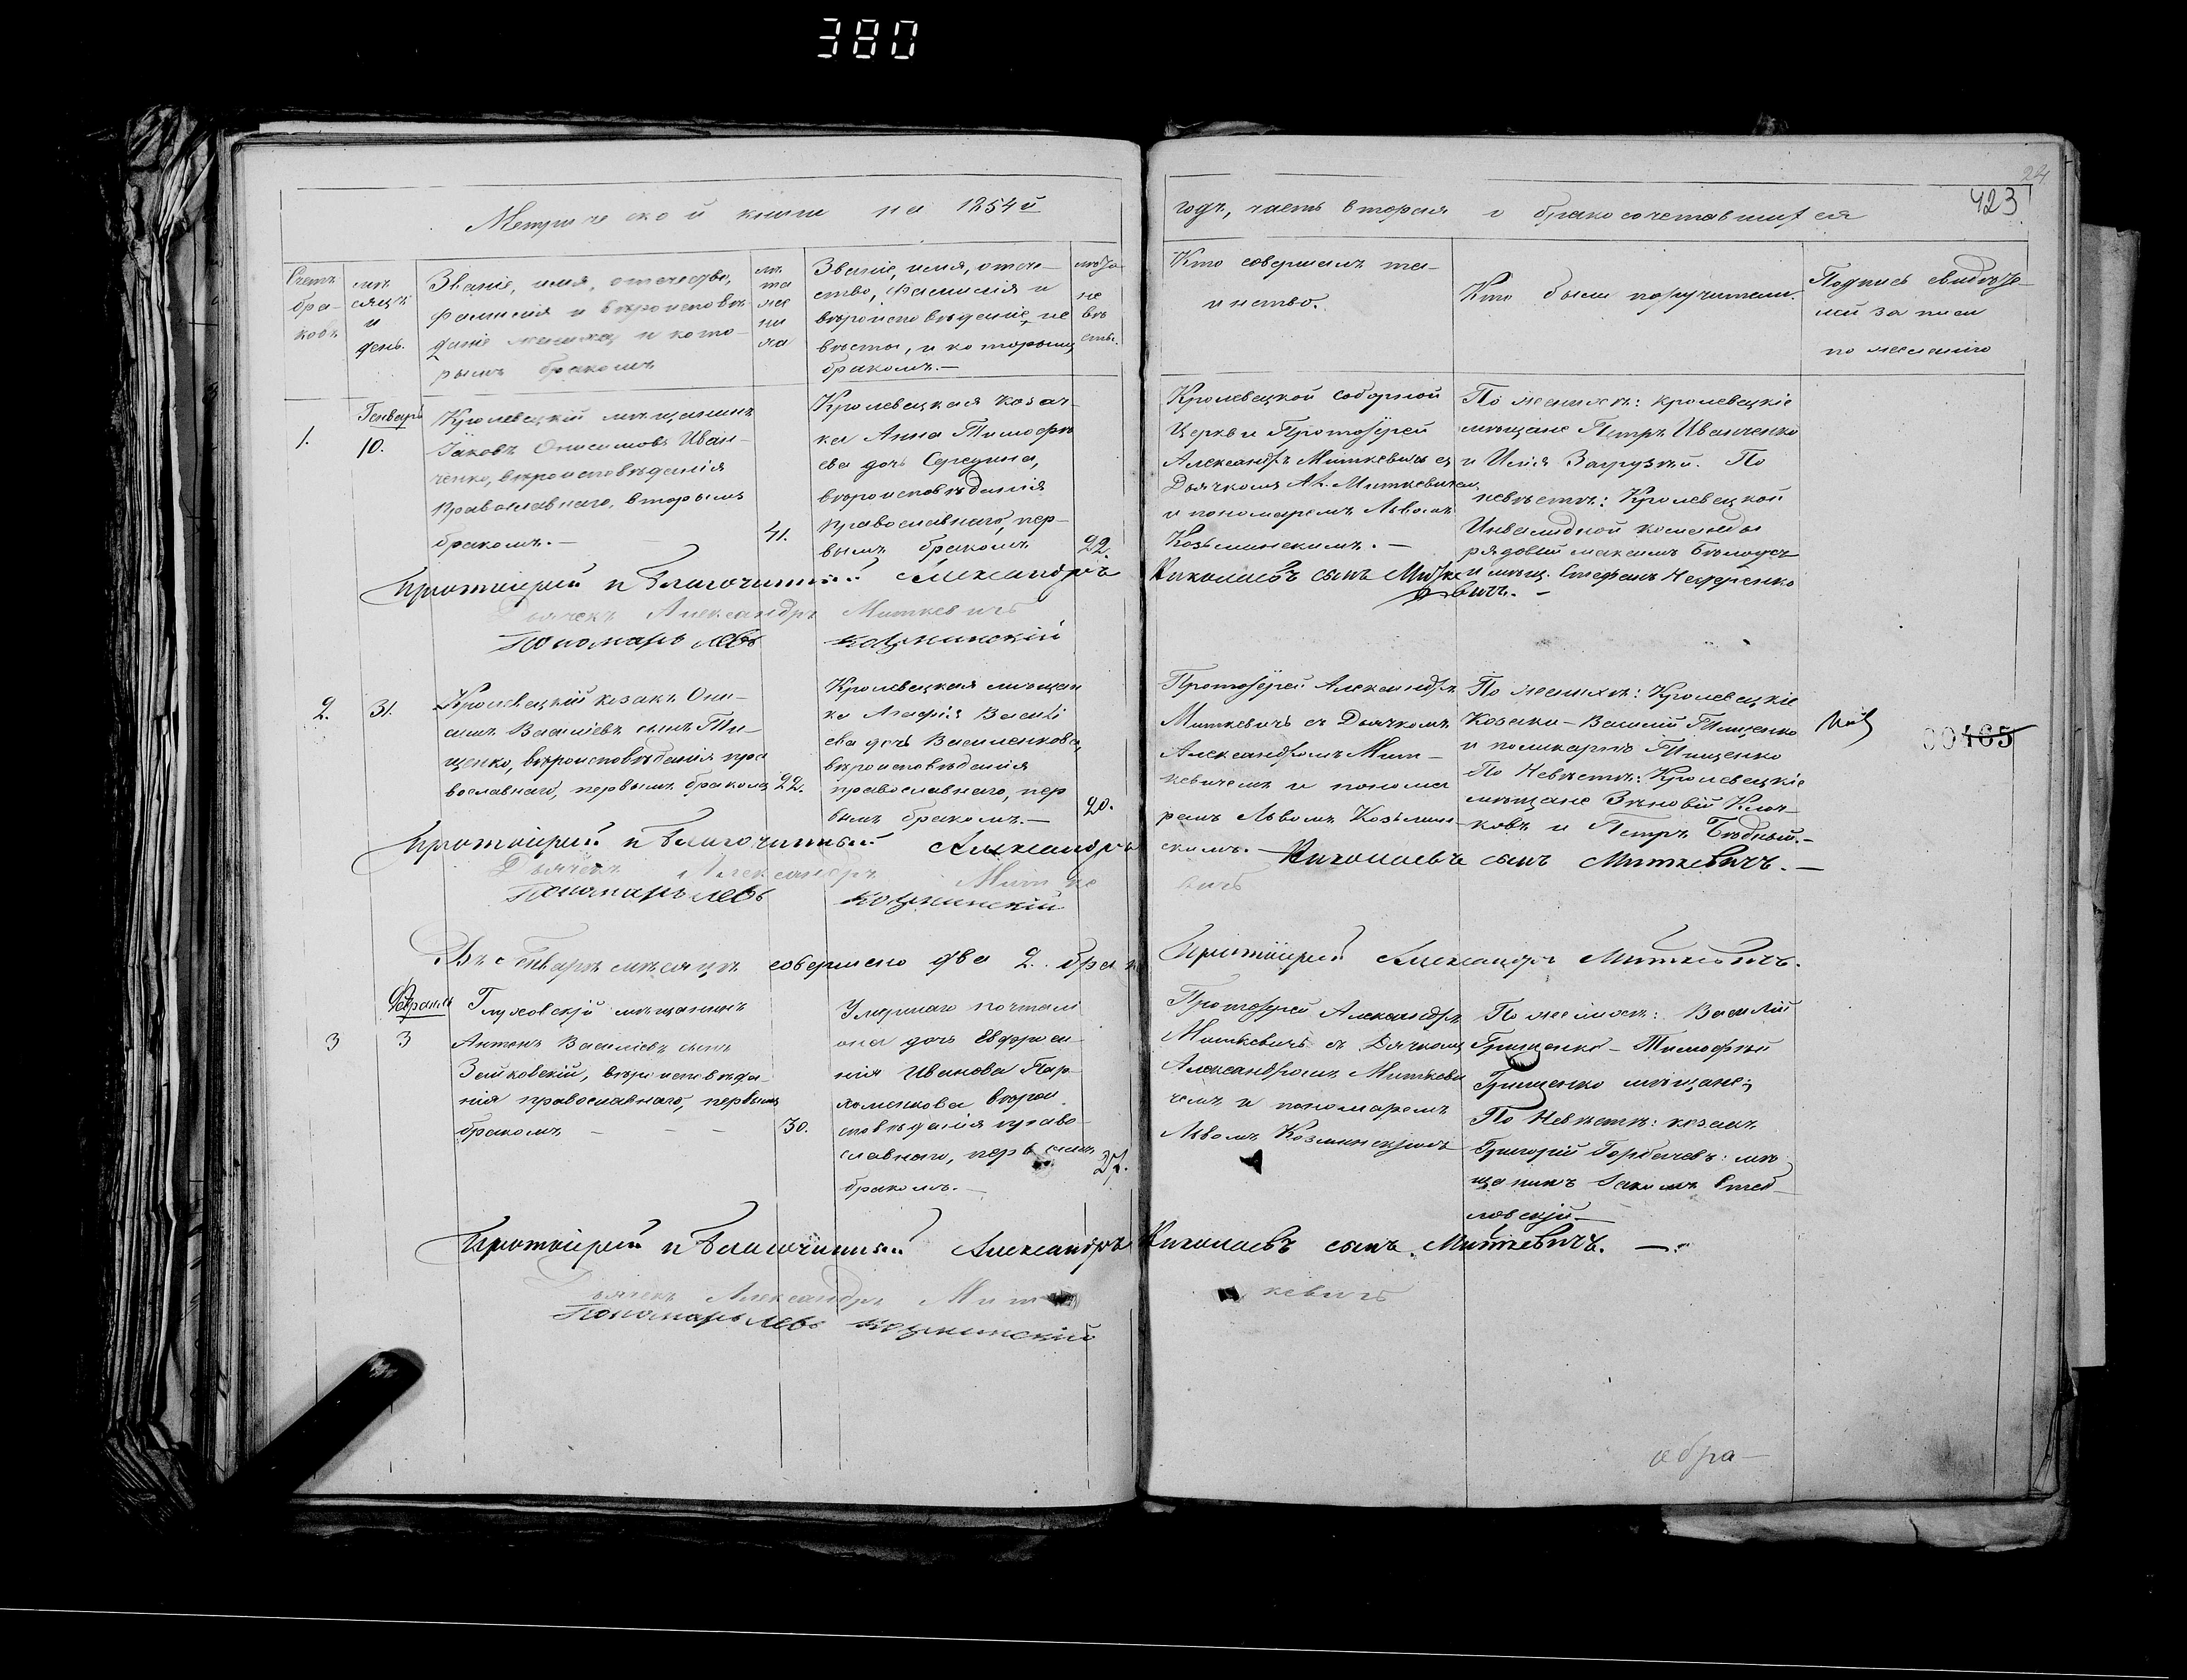 380
Метрической книги на 1854й
годъ, часть вторая о бракосочетавшихся
423
24
Счетъ
бра-
ковъ
мѣ-
сяцъ
и
день.
Званіе, имя, отечество,
фамилія и вѣроисповѣ-
даніе жениха, и кото-
рымъ бракомъ
лѣ
та
же
ни
ха
Званіе, имя, отече-
ство, фамилія и
вѣроисповѣданіе, не
вѣсты, и которымъ
бракомъ.—
лѣта
не
вѣ
сты.
Кто совершалъ та-
инство.
Кто были поручители.
Подпись свидѣте-
лей за писи
по желанію
1.
Генварь
10.
Кролевецкій мѣщанинъ
Іаковъ Онисимовъ Иван-
ченко, вѣроисповѣданія
православнаго, вторымъ
бракомъ.—
41.
Кролевецкая козач-
ка Анна Тимофѣ
ева дочь Середина,
вѣроисповѣданія
православнаго, пер-
вымъ бракомъ
22.
Кролевецкой соборной
Церкви Протоіерей
Александръ Миткевичъ съ
Дьячкомъ Ал. Миткевичемъ
и пономаремъ Львомъ
Козьминскимъ.—
По женихѣ: кролевецкіе
мѣщане Петръ Иванченко
и Илія Загрузкій. По
невѣстѣ: Кролевецкой
Инвалидной команды
рядовый максимъ
и мѣщ. Стефанъ Нефеденко
Протоіерей и Благочинный Александръ Николаевъ сынъ Митке
вичъ.—
Дьячекъ Александръ Миткевичъ
Пономарь Левъ Козминскій
2.
31.
Кролевецкій козакъ Они-
симъ Василіевъ сынъ Ти-
щенко, вѣроисповѣданія пра
вославнаго, первымъ бракомъ
22.
Кролевецкая мѣщан
ка Агафія Василі
ева дочь Василенкова,
вѣроисповѣданія
православнаго, пер
вымъ бракомъ.—
20.
Протоіерей Александръ
Миткевичъ съ Дьячкомъ
Александромъ Мит-
кевичемъ и понома
ремъ Львомъ Козьмин-
скимъ.—
По женихѣ: Кролевецкіе
Козаки — Василій Тищенко
и поликарпъ Тищенко
По Невѣстѣ: Кролевецкіе
мѣщане Зѣновій Клоч-
ковъ и Петръ Бѣдный.—
00405
Протоіерей и Благочинный Александръ Николаевъ сынъ Миткевичъ.—
Дьячекъ Александръ Митке
вичъ
Пономарь Левъ Козминскій
Въ Генварѣ мѣсяцѣ совершено два 2. брака
Протоіерей Александръ Миткевичъ.
3
Февраль
3
Глуховскій мѣщанинъ
Антонъ Василіевъ сынъ
Зайковскій, вѣроисповѣда-
нія православнаго, первымъ
бракомъ — — —
30.
Умершаго почталі
она дочь Евфроси-
нія Иванова Пар-
хоменкова вѣрои
сповѣданія право-
славнаго, первымъ
бракомъ.—
27.
Протоіерей Александръ
Миткевичъ съ Дьячкомъ
Александромъ Миткеви
чемъ и пономаремъ
Львомъ Козминскимъ
По женихѣ: Василій
Грищенко — Тимофѣй
Грищенко мѣщане;
По Невѣстѣ: козакъ
Григорій Горбачевъ: мѣ
щанинъ Іакимъ Стеб-
ловскій.—
Протоіерей и Благочинный Александръ Николаевъ сынъ Миткевичъ.—
Дьячекъ Александръ Мит
кевичъ
Пономарь Левъ Козминскій
обра—